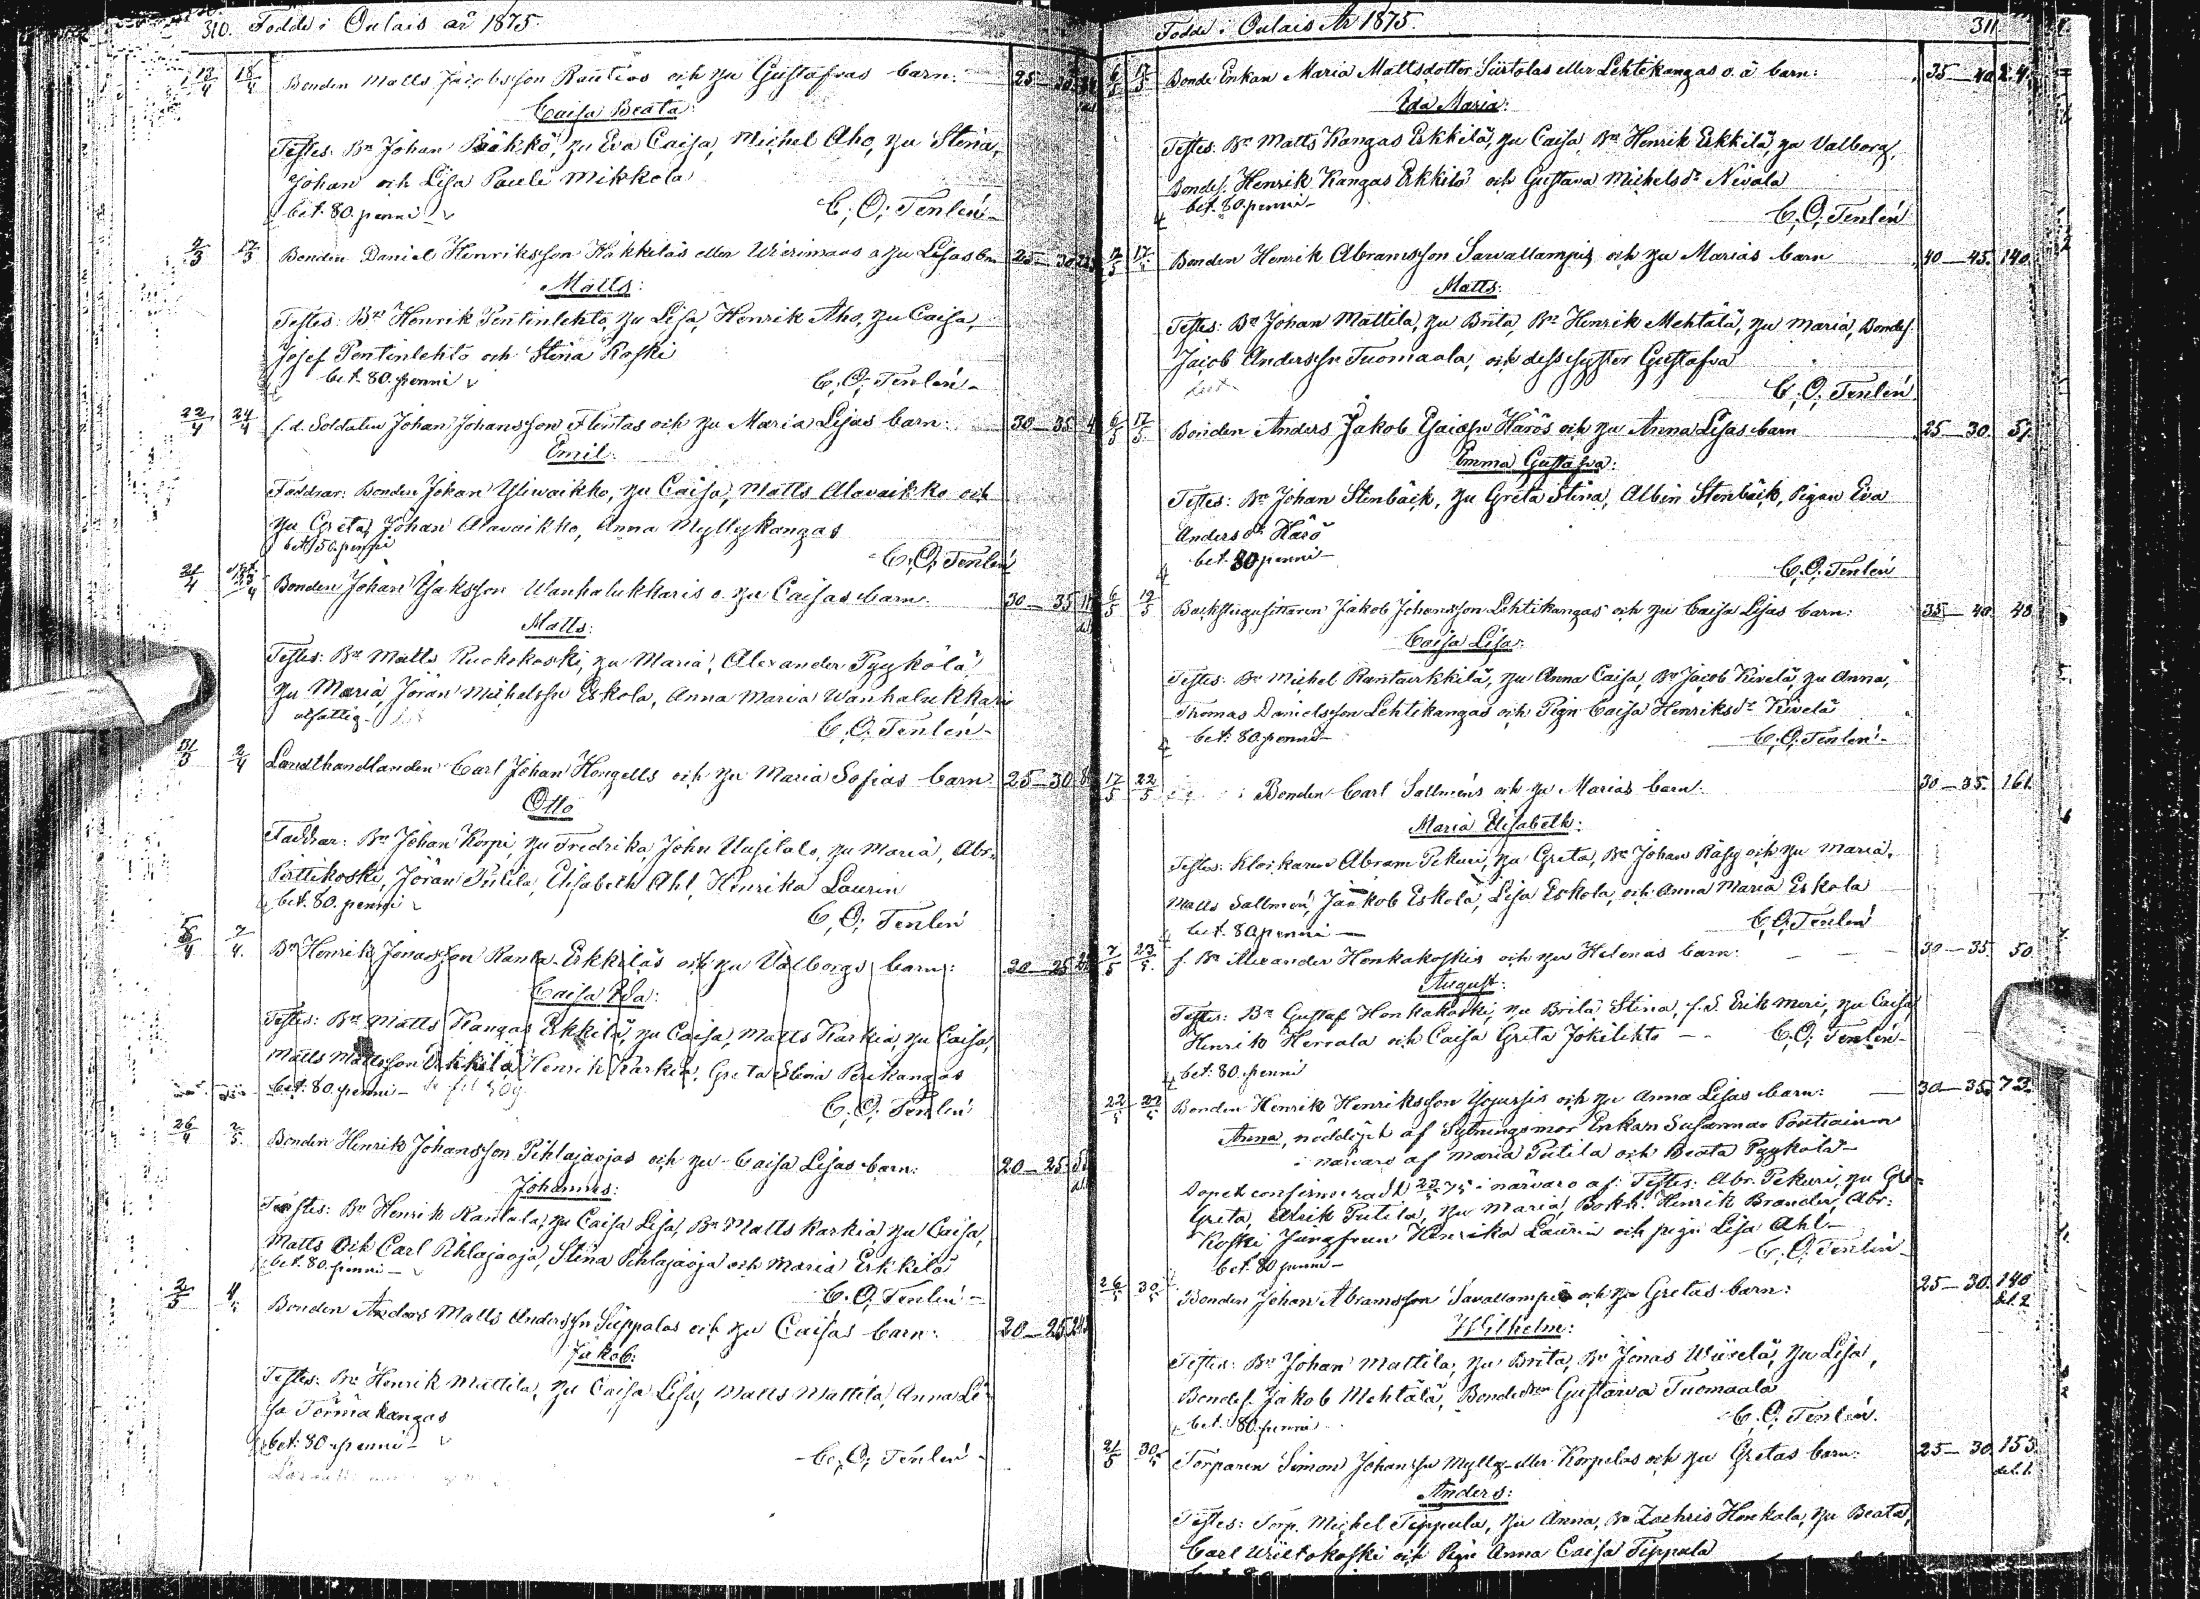 310. Födde i Oulais år 1875.
12/4 18/4 Bonden Matts Jacobsson Rautios och hu Gustafvas barn: 25–30
Caisa Beata:
Testes: Bn Johan Pähkö, hu Eva Caisa, Michel Aho, hu Stina,
Johan och Lisa Pauli Mikkola
bet. 80. penni
C. O. Tenlén
9/3 17/3 Bonden Daniel Henriksson Häkkiläs eller Wierimaas o hu Lisas bn 25–30
Matts:
Testes: Bn Henrik Pentinlehto, hu Lisa, Henrik Aho, hu Caisa,
Josef Pentinlehto och Stina Koski
bet. 80. penni
C. O. Tenlén
22/4 24/4 f. d. Soldaten Johan Johansson Flintas och hu Maria Lisas barn: 30–35
Emil:
Faddrar: Bonden Johan Yliwaikko, hu Caisa, Matts Alavaikko och
hu Greta, Johan Alavaikko, Anna Myllykangas
bet. 56 penni
C. O. Tenlén
21/4 Bonden Johan Isaksson Wanhalukkaris o. hu Caisas barn. 30–35
Matts:
Testes: Bn Matts Ruokokoski, hu Maria, Alexander Pyykölä,
hu Maria, Jöran Michelsson Eskola, Anna Maria Wanhalukkari
utfattig
C. O. Tenlén
31/3 2/4 Landthandlanden Carl Johan Hongells och hu Maria Sofias barn 25–30
Otto
Faddrar: Bn Johan Korpi, hu Fredrika, John Uusitalo, hu Maria, Abr.
Pirttikoski, Jöran Putila, Elisabeth Ahl, Henrika Laurin
bet. 80. penni
C. O. Tenlén
5/4 7/4. Bn Henrik Jonasson Ranta-Erkkiläs och hu Valborgs barn: 20–25
Caisa Ida:
Testes: Bn Matts Kangas Erkkilä, hu Caisa, Matts Karkia, hu Caisa,
Matts Mattsson Erkkilä Henrik Karkia, Greta Stina Perikangas
bet: 80 penni
C. O. Tenlén
26/4 2/5. Bonden Henrik Johansson Pihlajaojas och hu Caisa Lisas barn: 20–25
Johannes:
Testes: Bn Henrik Rautala, hu Caisa Lisa, Bn Matts Karkia, hu Caisa,
Matts och Carl Pihlajaoja, Stina Pihlajaoja och Maria Erkkilä
bet. 80. penni
C. O. Tenlén
2/5 4/5 Bonden Anders Matts Andersson Sippolas och hu Caisas barn: 20–25
Jakob:
Testes: Bn Henrik Mattila, hu Caisa Lisa, Matts Mattila, Anna Li-
sa Törmäkangas
bet: 80 penni
C. O. Tenlén
Födde i Oulais År 1875. 311
6/5 17/5 Bonde Enkan Maria Mattsdotter Siirtolas eller Lehtikangas o. ä barn: 35–40
Ida Maria:
Testes: Bn Matts Kangas Erkkilä, hu Caisa, Bn Henrik Erkkilä, hu Valborg,
Bondes. Henrik Kangas Erkkilä och Gustava Michelsdr Nivala
bet. 80. penni
C. O. Tenlén
12/5 17/5 Bonden Henrik Abramsson Sawallampis och hu Marias barn 40–45. 140
Matts:
Testes: Bn Johan Mattila, hu Brita, Bn Henrik Mehtälä, hu Maria, Bondes.
Jacob Andersson Tuomaala, och dess syster Gustafva
C. O. Tenlén
6/5 17/5 Bonden Anders Jakob Esaiasson Härös och hu Anna Lisas barn 25–30. 51
Emma Gustafva:
Testes: Bn Johan Stenbäck, hu Greta Stina, Albin Stenbäck, Pigan Eva
Andersdr Härö
bet. 80 penni
C. O. Tenlén
6/5 19/5 Backstugusittaren Jakob Johansson Lehtikangas och hu Caisa Lisas barn: 35–40. 48
Caisa Lisa:
Testes: Bn Michel Rantaerkkilä, hu Anna Caisa, Bn Jacob Kivelä, hu Anna,
Thomas Danielsson Lehtikangas och Pign Caisa Henriksdr Kivelä
bet. 80. penni
C. O. Tenlén
17/5 22/5 Bonden Carl Sallmens och hu Marias barn: 30–35. 161
Maria Elisabeth:
Testes: Klockaren Abram Pekuri, hu Greta, Bn Johan Räsy och hu Maria,
Matts Sallmén, Jaakob Eskola, Lisa Eskola, och Anna Maria Eskola
bet. 80 penni
C. O. Tenlén
7/5 23/5. f. Bn Alexander Honkakoskis och hu Helenas barn: 30–35. 50
August:
Testes: Bn Gustaf Honkakoski, hu Brita Stina, f. S. Erik Meri, hu Caisa,
Henrik Herrala och Caisa Greta Jokilehto
C. O. Tenlén
bet. 80. penni
22/5 27/5 Bonden Henrik Henriksson Yojursis och hu Anna Lisas barn: 30–35. 73.
Anna, nöddöpt af Sytningsmor Enkan Susanna Pontiainen
i närvaro af Maria Putila och Beata Pyykölä
Dopet confirmeradt 27/5 75 i närvaro af: Testes: Abr. Pekuri, hu Gre-
Greta, Ulrik Putila, hu Maria, Bokh. Henrik Brander, Abr:
Koski Jungfrun Henrika Laurin och pign Lisa Ahl
C. O. Tenlén
bet. 80 penni
26/5 30/5 Bonden Johan Abramsson Savallampis och hu Gretas barn: 25–30. 140
del. 2
Wilhelm:
Testes: Bn Johan Mattila, hu Brita, Bn Jonas Wiirelä, hu Lisa,
Bondes. Jakob Mehtälä, Bondedtr Gustava Tuomaala
bet. 80. penni
C. O. Tenlén.
21/5 30/5 Torparen Simon Johansson Mylly- eller Korpelas och hu Gretas barn: 25–30. 153.
del. 1.
Anders:
Testes: Torp. Michel Tippula, hu Anna, Bn Zachris Honkala, hu Beata,
Carl Wiitokoski och Pign Anna Caisa Tippula